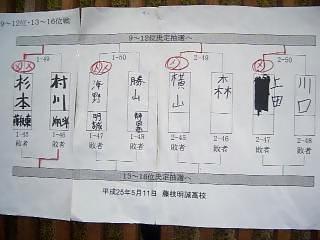 9~12位・13~16位戦
9~12位決定抽選へ
1-49 1-50 2-49 2-50
杉本 村川 海野 勝山 横山 森 上田 川口
藤東 明誠
1-45 1-46 1-47 1-48 2-45 2-46 2-47 2-48
敗者 敗者 敗者 敗者 敗者 敗者 敗者 敗者
13~16位決定抽選へ
平成25年5月11日 藤枝明誠高校